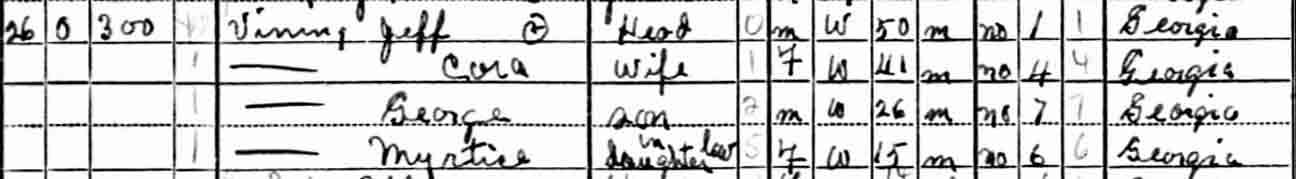 26 0 300 Vining, Jeff Head 0 m W 50 m no 1 1 Georgia
1 — Cora Wife 1 F W 41 m no 4 4 Georgia
1 — George son 2 m W 26 m no 7 7 Georgia
1 — Myrtice daughter in law 5 F W 15 m no 6 6 Georgia